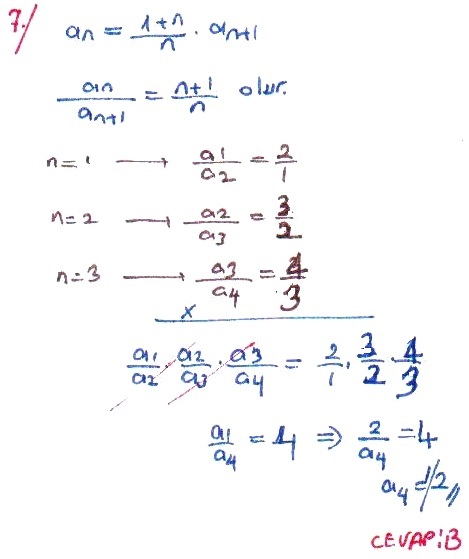 7./ an = 1+n/n . an+1
an/an+1 = n+1/n olur.
n=1 → a1/a2 = 2/1
n=2 → a2/a3 = 3/2
n=3 → a3/a4 = 4/3
x
a1/a2 . a2/a3 . a3/a4 = 2/1 . 3/2 . 4/3
a1/a4 = 4 ⇒ 2/a4 = 4
a4 = 1/2 //
CEVAP: B